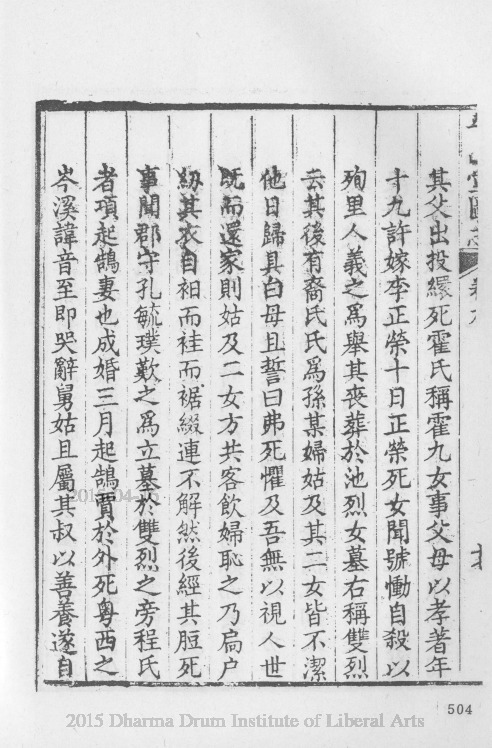 其父出投繯死霍氏稱霍九女事父母以孝著年
十九許嫁李正榮十日正榮死女聞號慟自殺以
殉里人義之為舉其喪葬於池烈女墓右稱雙烈
云其後有裔氏氏為孫某婦姑及其二女皆不潔
他日歸具白母且誓曰弗死懼及吾無以視人世
既而還家則姑及二女方共客飲婦恥之乃扃户
紉其衣自袒而袿而裾綴連不解然後經其脰死
事聞郡守孔毓璞歎之為立墓於雙烈之旁程氏
者項起鵠妻也成婚三月起鵠賈於外死粵西之
岑溪諱音至即哭辭舅姑且屬其叔以善養遂自
504
2015 Dharma Drum Institute of Liberal Arts